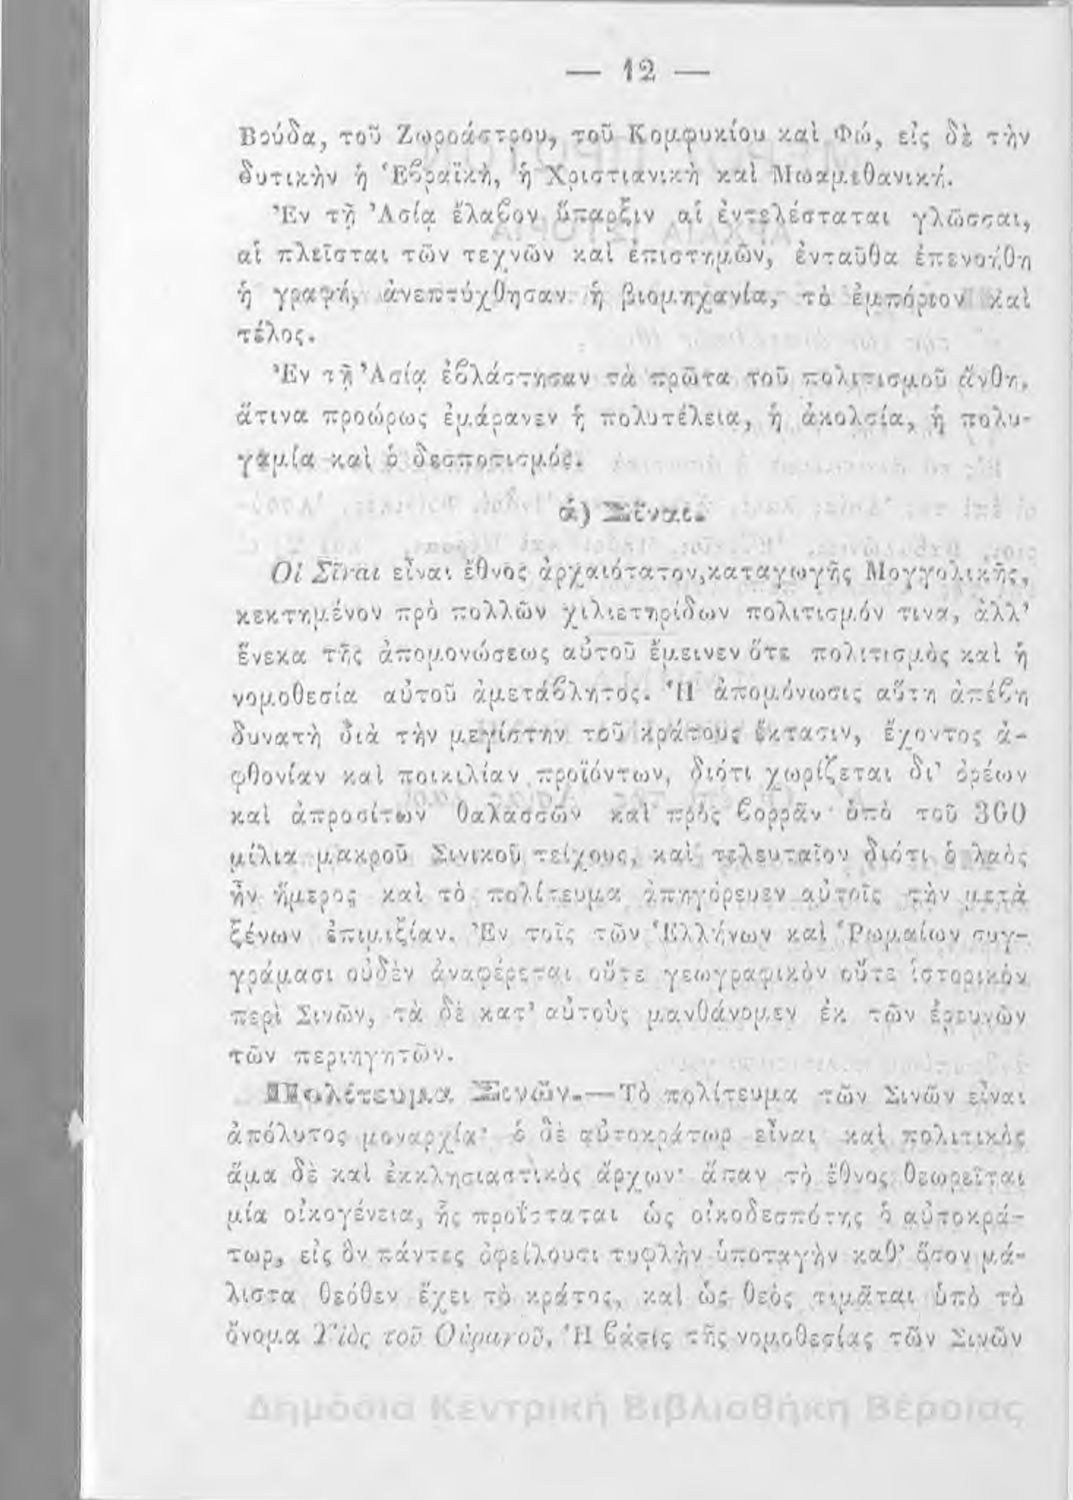 — 12 —
Βούδα, τοῦ Ζωροάστρου, τοῦ Κομφυκίου καὶ Φώ, εἰς δὲ τὴν
δυτικὴν ἡ Ἑβραϊκὴ, ἡ Χριστιανικὴ καὶ Μωαμεθανική.
Ἐν τῇ Ἀσίᾳ ἔλαβον ὕπαρξιν αἱ ἐντελέσταται γλῶσσαι,
αἱ πλεῖσται τῶν τεχνῶν καὶ ἐπιστημῶν, ἐνταῦθα ἐπενοήθη
ἡ γραφή, ἀνεπτύχθησαν ἡ βιομηχανία, τὸ ἐμπόριον καὶ
τέλος.
Ἐν τῇ Ἀσίᾳ ἐβλάστησαν τὰ πρῶτα τοῦ πολιτισμοῦ ἄνθη,
ἅτινα προώρως ἐμάρανεν ἡ πολυτέλεια, ἡ ἀκολσία, ἡ πολυ-
γαμία καὶ ὁ δεσποτισμός.
ά) Σῖναι.
Οἱ Σῖναι εἶναι ἔθνος ἀρχαιότατον, καταγωγῆς Μογγολικῆς,
κεκτημένον πρὸ πολλῶν χιλιετηρίδων πολιτισμόν τινα, ἀλλ’
ἕνεκα τῆς ἀπομονώσεως αὐτοῦ ἔμεινεν ὅτε πολιτισμὸς καὶ ἡ
νομοθεσία αὐτοῦ ἀμετάβλητος. Ἡ ἀπομόνωσις αὕτη ἀπέβη
δυνατὴ διὰ τὴν μεγίστην τοῦ κράτους ἔκτασιν, ἔχοντος ἀ-
φθονίαν καὶ ποικιλίαν προϊόντων, διότι χωρίζεται δι’ ὀρέων
καὶ ἀπροσίτων θαλασσῶν καὶ πρὸς βορρᾶν ὑπὸ τοῦ 360
μίλια μακροῦ Σινικοῦ τείχους, καὶ τελευταῖον διότι ὁ λαὸς
ἦν ἥμερος καὶ τὸ πολίτευμα ἀπηγόρευεν αὐτοῖς τὴν μετὰ
ξένων ἐπιμιξίαν. Ἐν τοῖς τῶν Ἑλλήνων καὶ Ῥωμαίων συγ-
γράμασι οὐδὲν ἀναφέρεται οὔτε γεωγραφικὸν οὔτε ἱστορικὸν
περὶ Σινῶν, τὰ δὲ κατ’ αὐτοὺς μανθάνομεν ἐκ τῶν ἐρευνῶν
τῶν περιηγητῶν.
Πολίτευμα Σινῶν.—Τὸ πολίτευμα τῶν Σινῶν εἶναι
ἀπόλυτος μοναρχία· ὁ δὲ αὐτοκράτωρ εἶναι καὶ πολιτικὸς
ἅμα δὲ καὶ ἐκκλησιαστικὸς ἄρχων· ἅπαν τὸ ἔθνος θεωρεῖται
μία οἰκογένεια, ἧς προΐσταται ὡς οἰκοδεσπότης ὁ αὐτοκρά-
τωρ, εἰς ὃν πάντες ὀφείλουσι τυφλὴν ὑποταγὴν καθ’ ὅσον μά-
λιστα θεόθεν ἔχει τὸ κράτος, καὶ ὡς θεὸς τιμᾶται ὑπὸ τὸ
ὄνομα Υἱὸς τοῦ Οὐρανοῦ. Ἡ βάσις τῆς νομοθεσίας τῶν Σινῶν
Δημόσια Κεντρική Βιβλιοθήκη Βέροιας